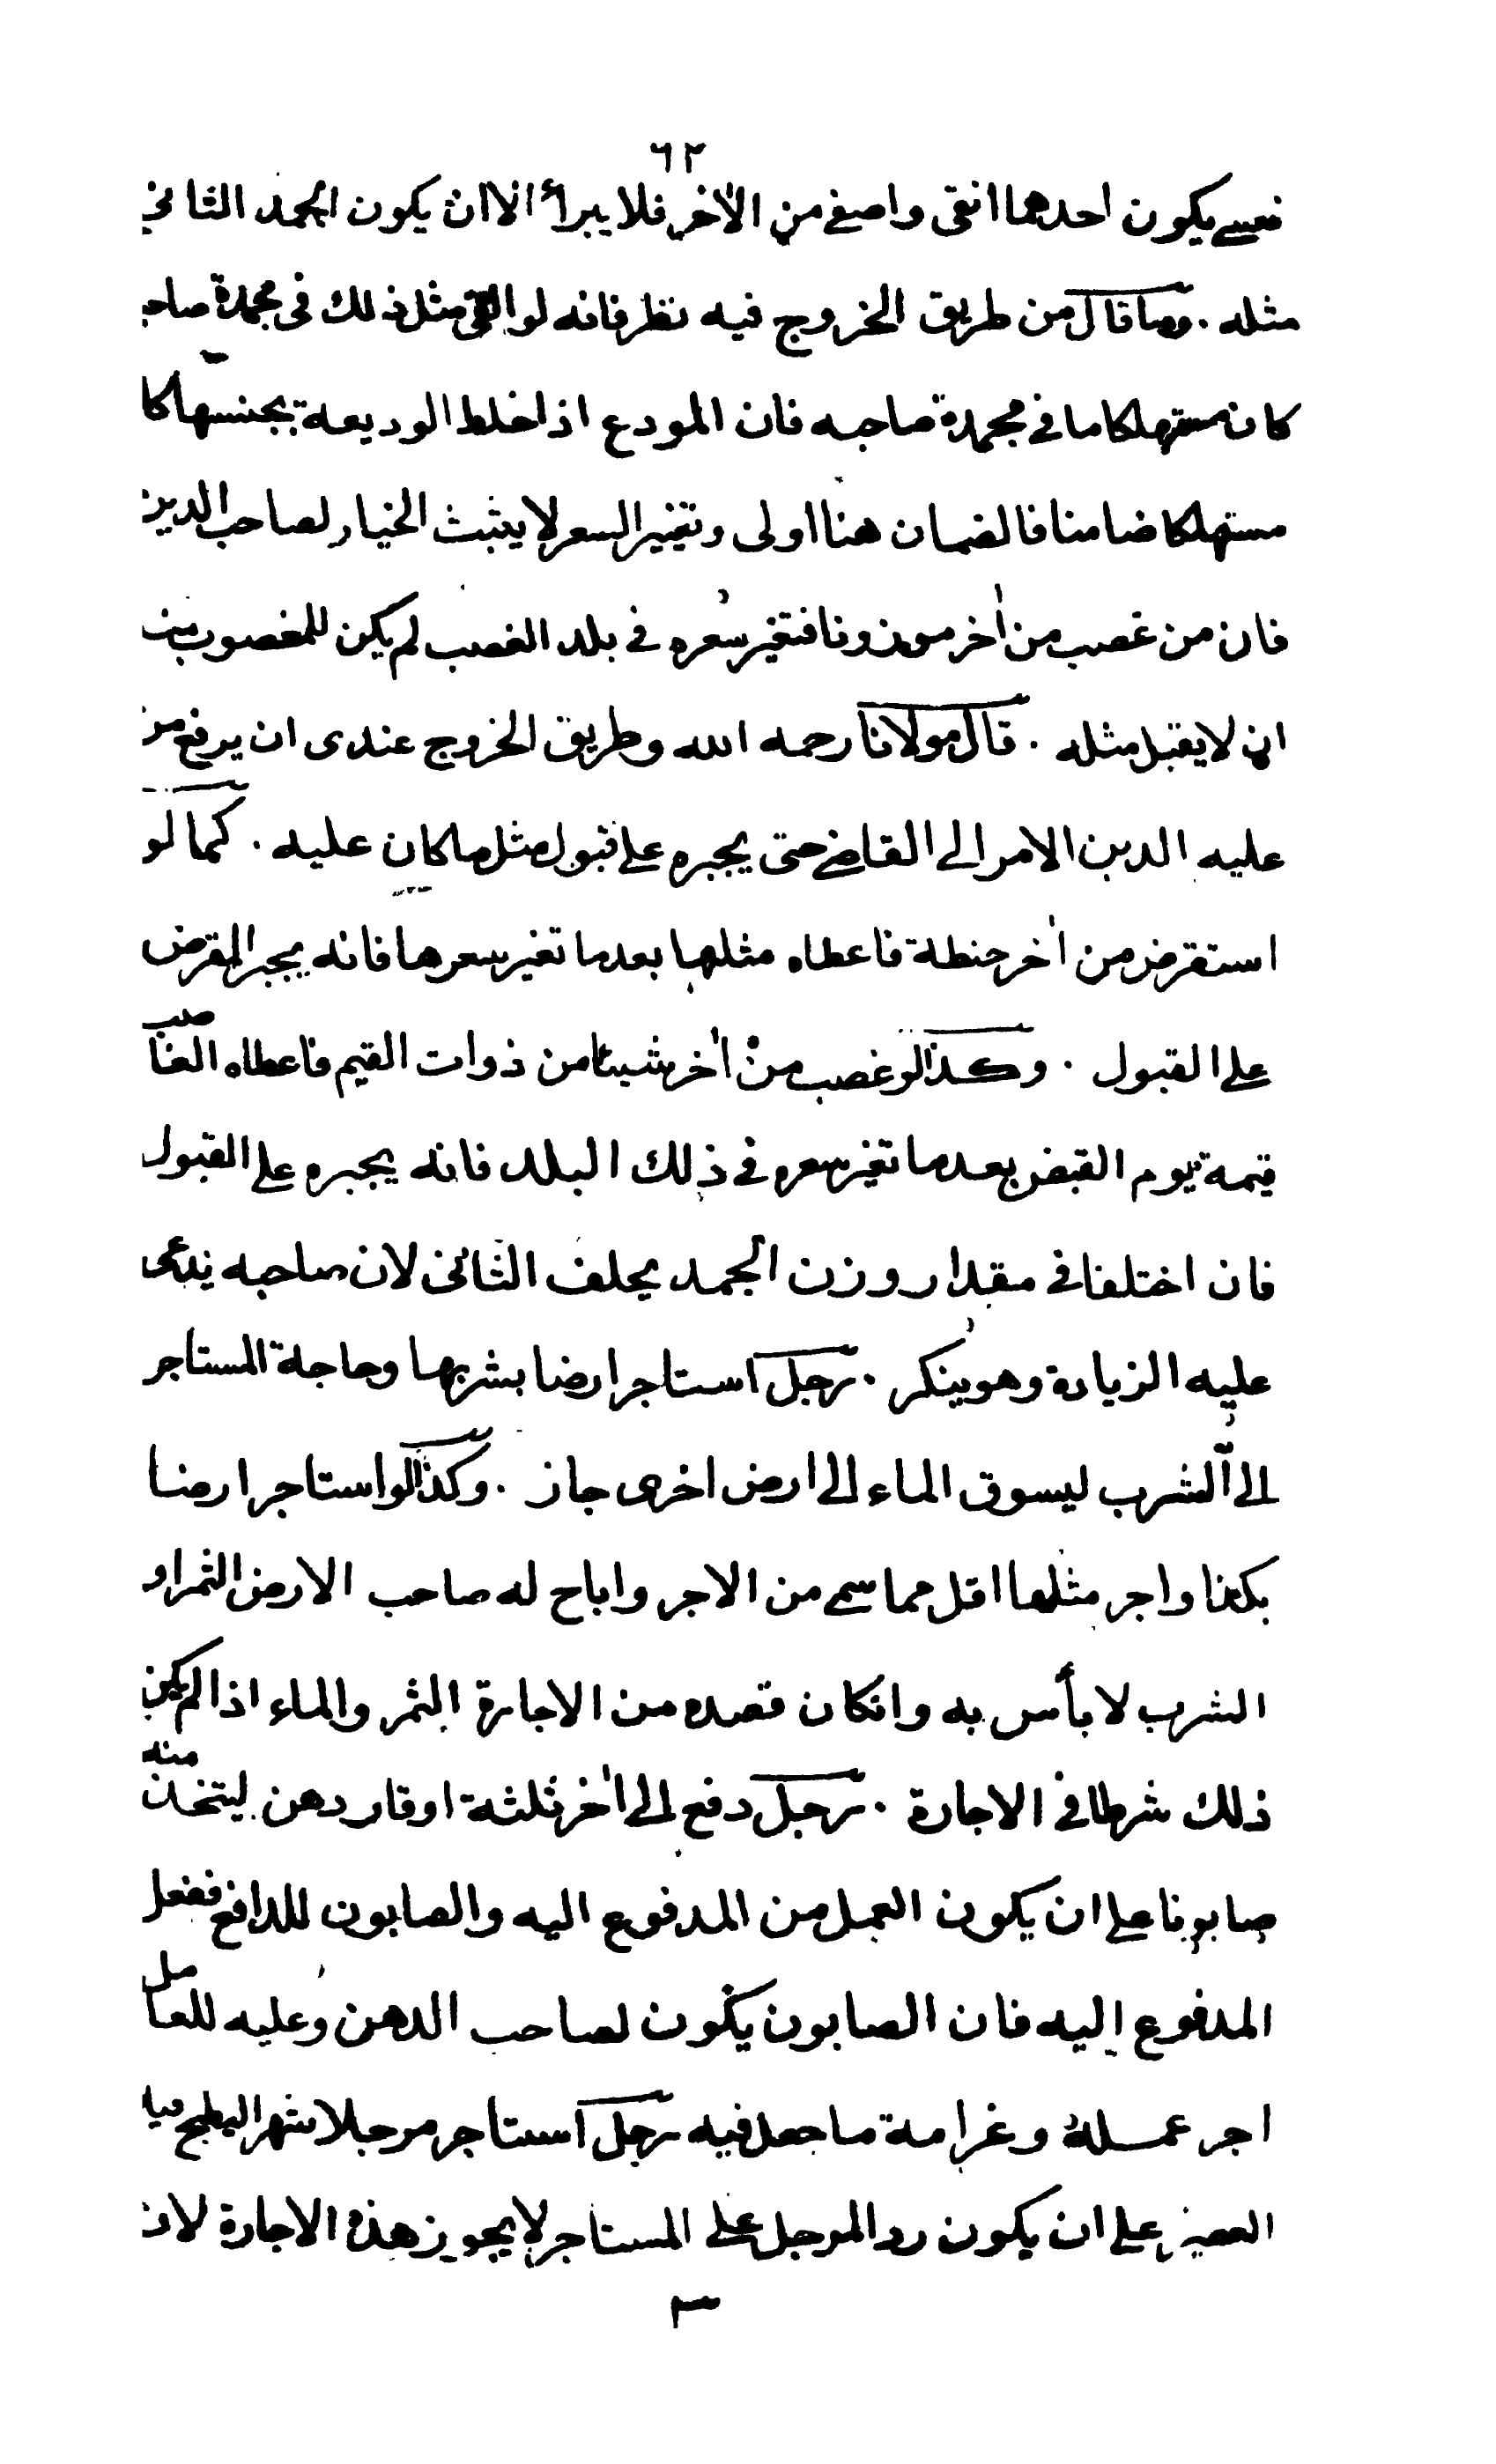 ٦٢
فعسى يكون احدهما انقى واصفى من الآخر فلا يبرأ الا ان يكون الجمد الثانى
مثله . وما قال من طريق الخروج فيه نظر فانه لو القى مثل ذلك فى مجمدة صاحبه
كان مستهلكا ما فى مجمدة صاحبه فان المودع اذا خلط الوديعة بجنسها كا
مستهلكا ضامنا فالضمان هنا اولى وتغير السعر لا يثبت الخيار لصاحب الدين
فان من غصب من آخر موزونا فتغير سعره فى بلد الغصب لم يكن للمغصوب منه
ان لا يقبل مثله . قال مولانا رحمه الله وطريق الخروج عندى ان يرفع من
عليه الدين الامر الى القاضى حتى يجبره على قبول مثل ما كان عليه . كما لو
استقرض من آخر حنطة فاعطاه مثلها بعدما تغير سعرها فانه يجبر المقرض
على القبول . وكذا لو غصب من آخر شيئا من ذوات القيم فاعطاه الغاصب
قيمة يوم القبض بعدما تغير سعره فى ذلك البلد فانه يجبره على القبول
فان اختلفا فى مقدار وزن الجمد يحلف الثانى لان صاحبه يدعى
عليه الزيادة وهو ينكر . رجل استاجر ارضا بشربها وحاجة المستاجر
الى الشرب ليسوق الماء الى ارض اخرى جاز . وكذا لو استاجر ارضا
بكذا واجر مثلها اقل مما سمى من الاجر واباح له صاحب الارض الثمر او
الشرب لا بأس به وانكان قصده من الاجارة الثمر والماء اذا لم يكن
ذلك شرطا فى الاجارة . رجل دفع الى آخر ثلثة اوقار دهن ليتخذ منه
صابونا على ان يكون العمل من المدفوع اليه والصابون للدافع ففعل
المدفوع اليه فان الصابون يكون لصاحب الدهن وعليه للعامل
اجر عمله وغرامة ما جعل فيه رجل استاجر مرجلا شهرا ليطبخ فيه
العصير على ان يكون رد المرجل على المستاجر لا يجوز هذه الاجارة لان